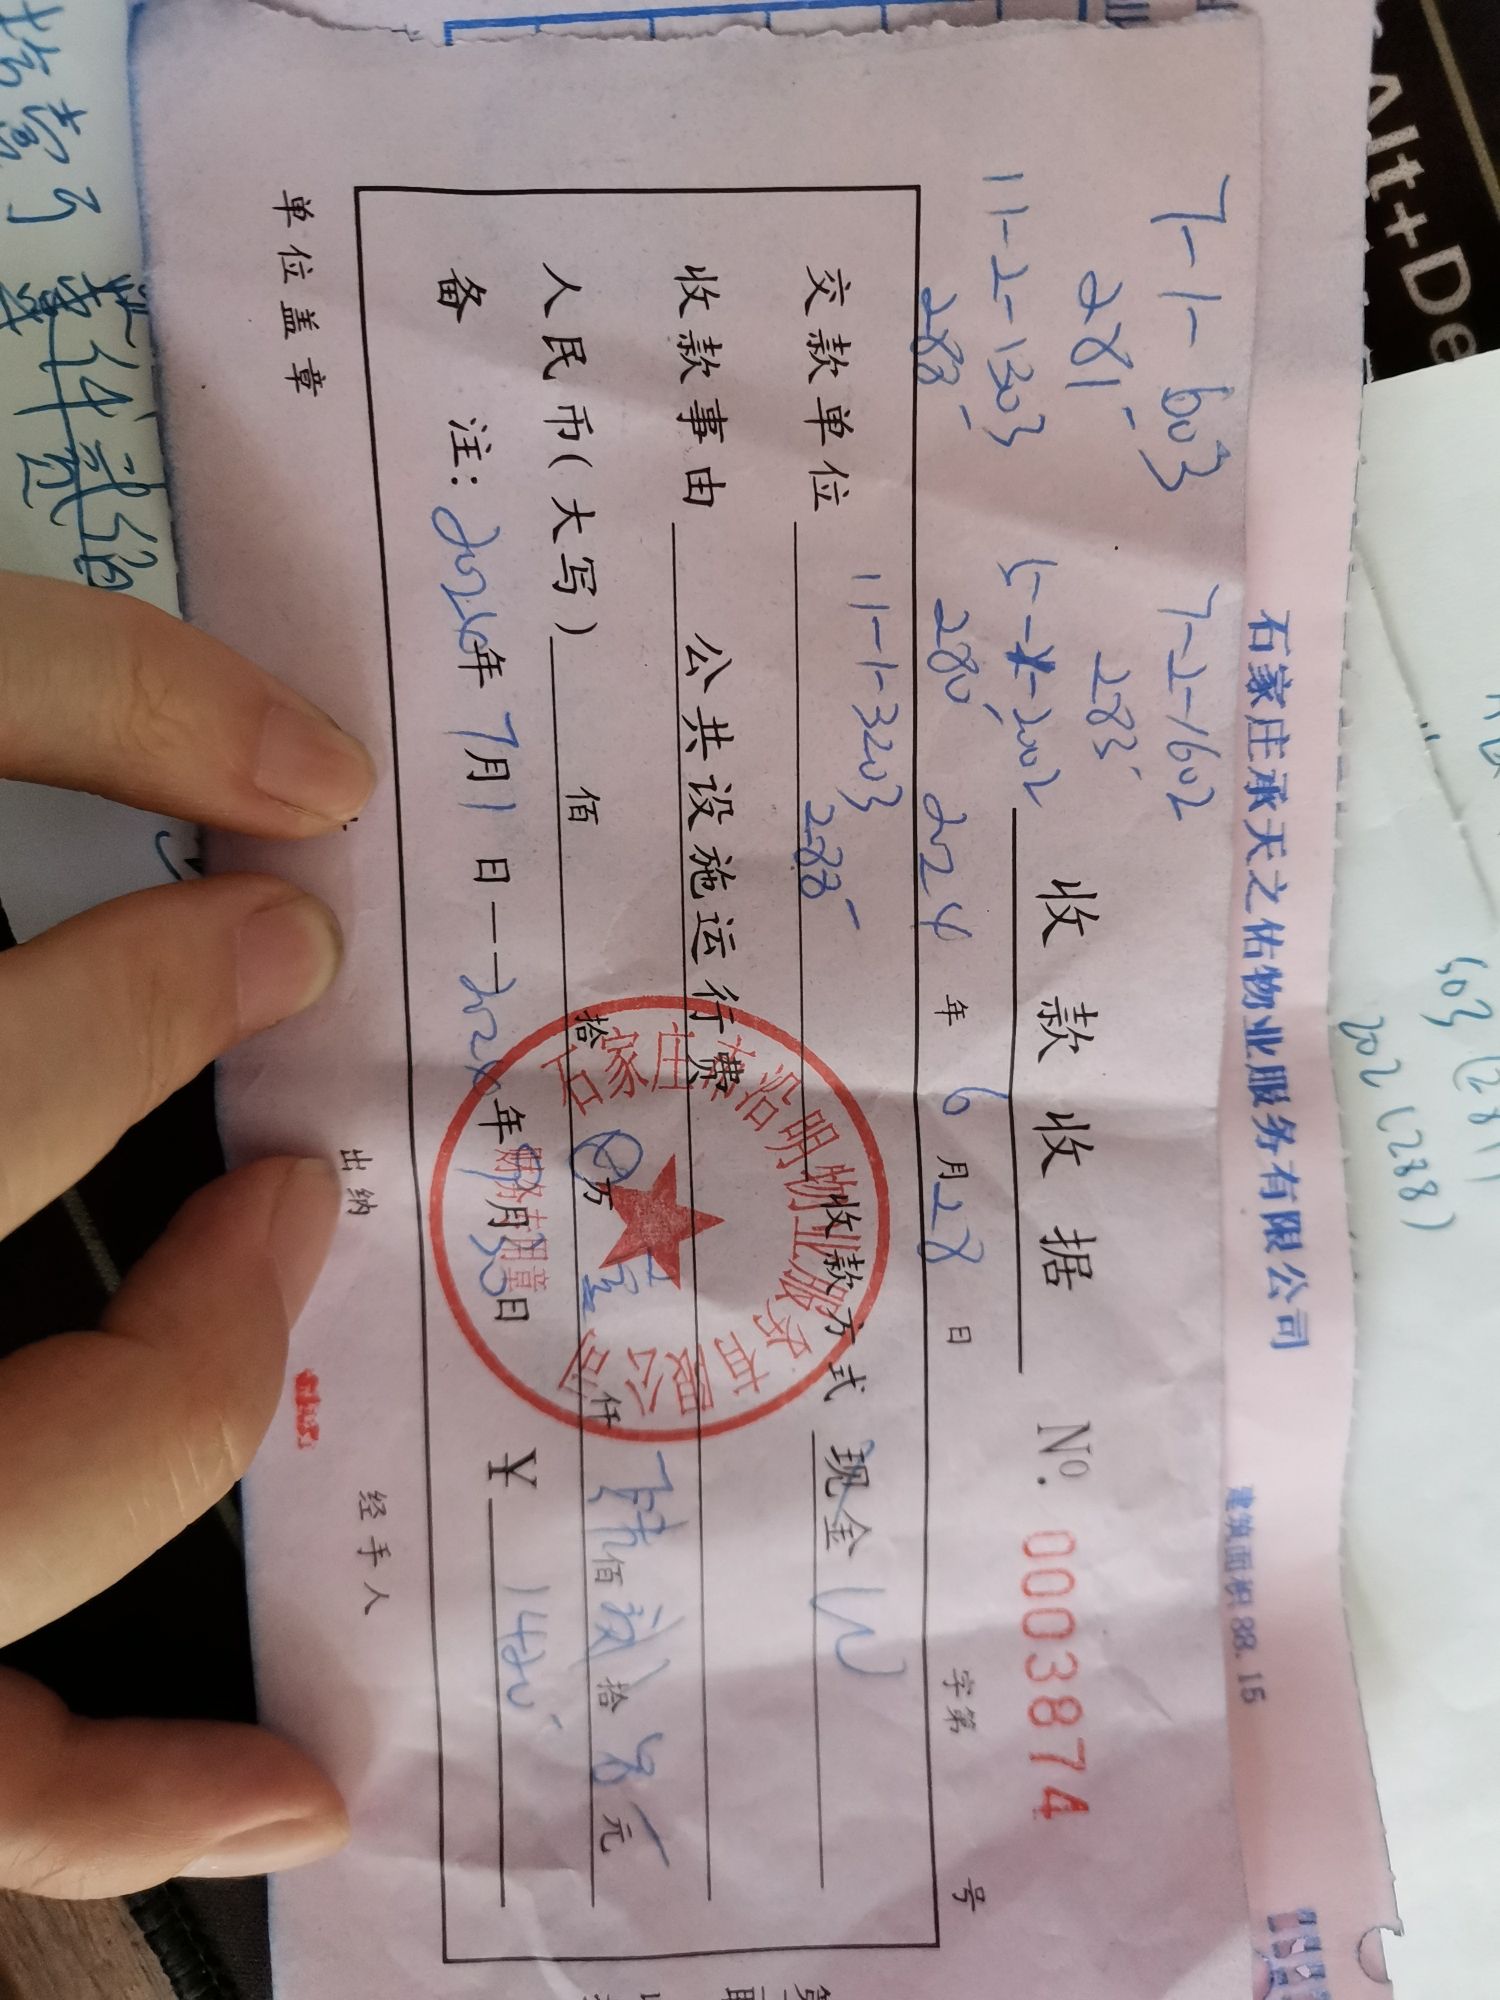 Alt+De
石家庄承天之佑物业服务有限公司
建筑面积 88.15
7-1-603
281-
7-2-1602
283
11-2-1303
288-
5--2002
280
收款收据
No. 0003874
2024年6月28日
字第 号
11-1-3203
288-
交款单位
收款方式 现金
收款事由 公共设施运行费
人民币(大写) 佰 拾 万 仟 佰 拾 元
备注: 年7月1日-- 年9月30日
¥ 1420
单位盖章
出纳
经手人
石家庄 沿明物业服务有限公司
财务专用章
603 (281)
202 (288)